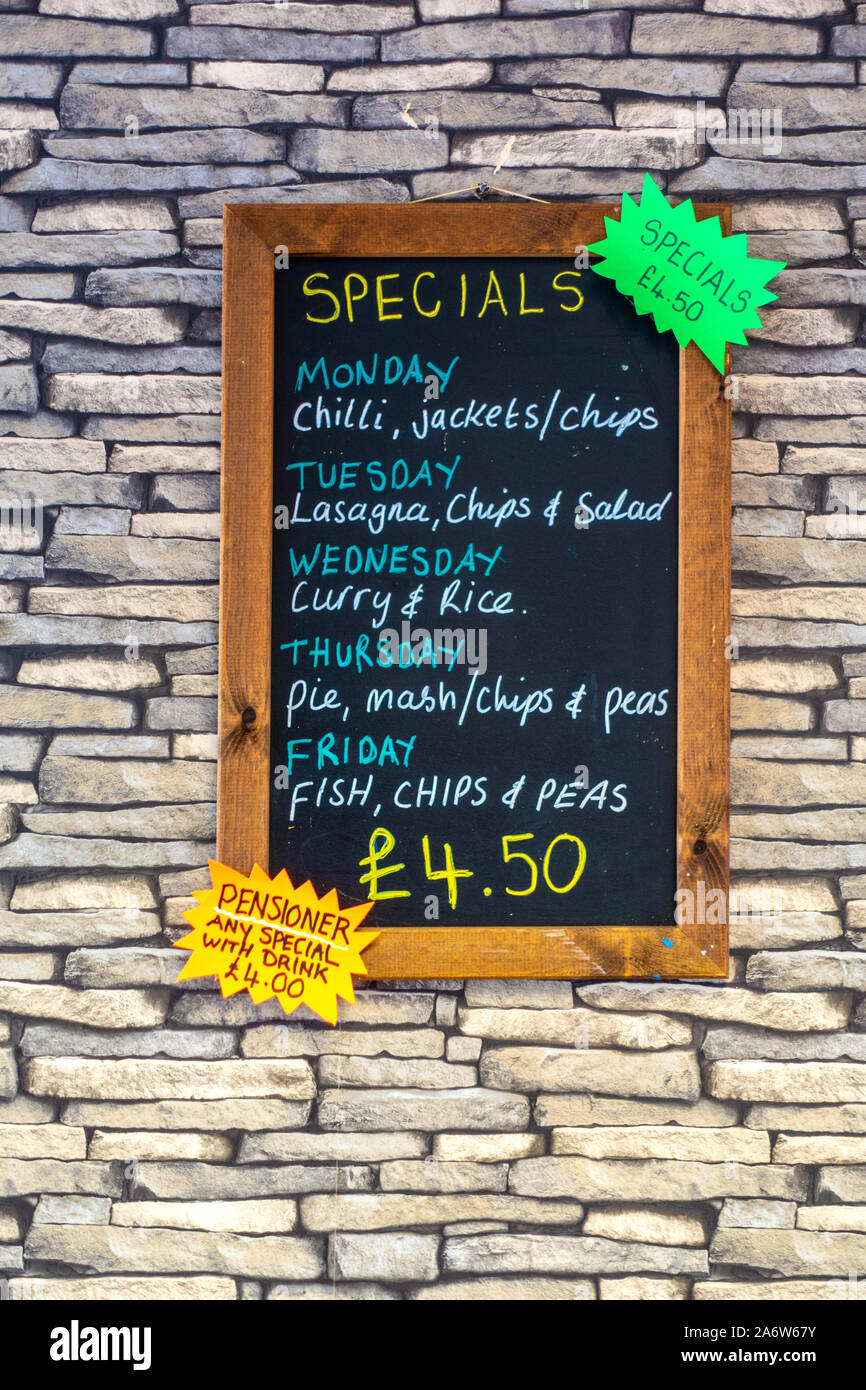 SPECIALS
£4.50
SPECIALS
MONDAY
Chilli, jackets/chips
TUESDAY
Lasagna, Chips & Salad
WEDNESDAY
Curry & Rice.
THURSDAY
Pie, mash/chips & peas
FRIDAY
FISH, CHIPS & PEAS
£4.50
PENSIONER
ANY SPECIAL
WITH DRINK
£4.00
alamy
Image ID: 2A6W67Y
www.alamy.com